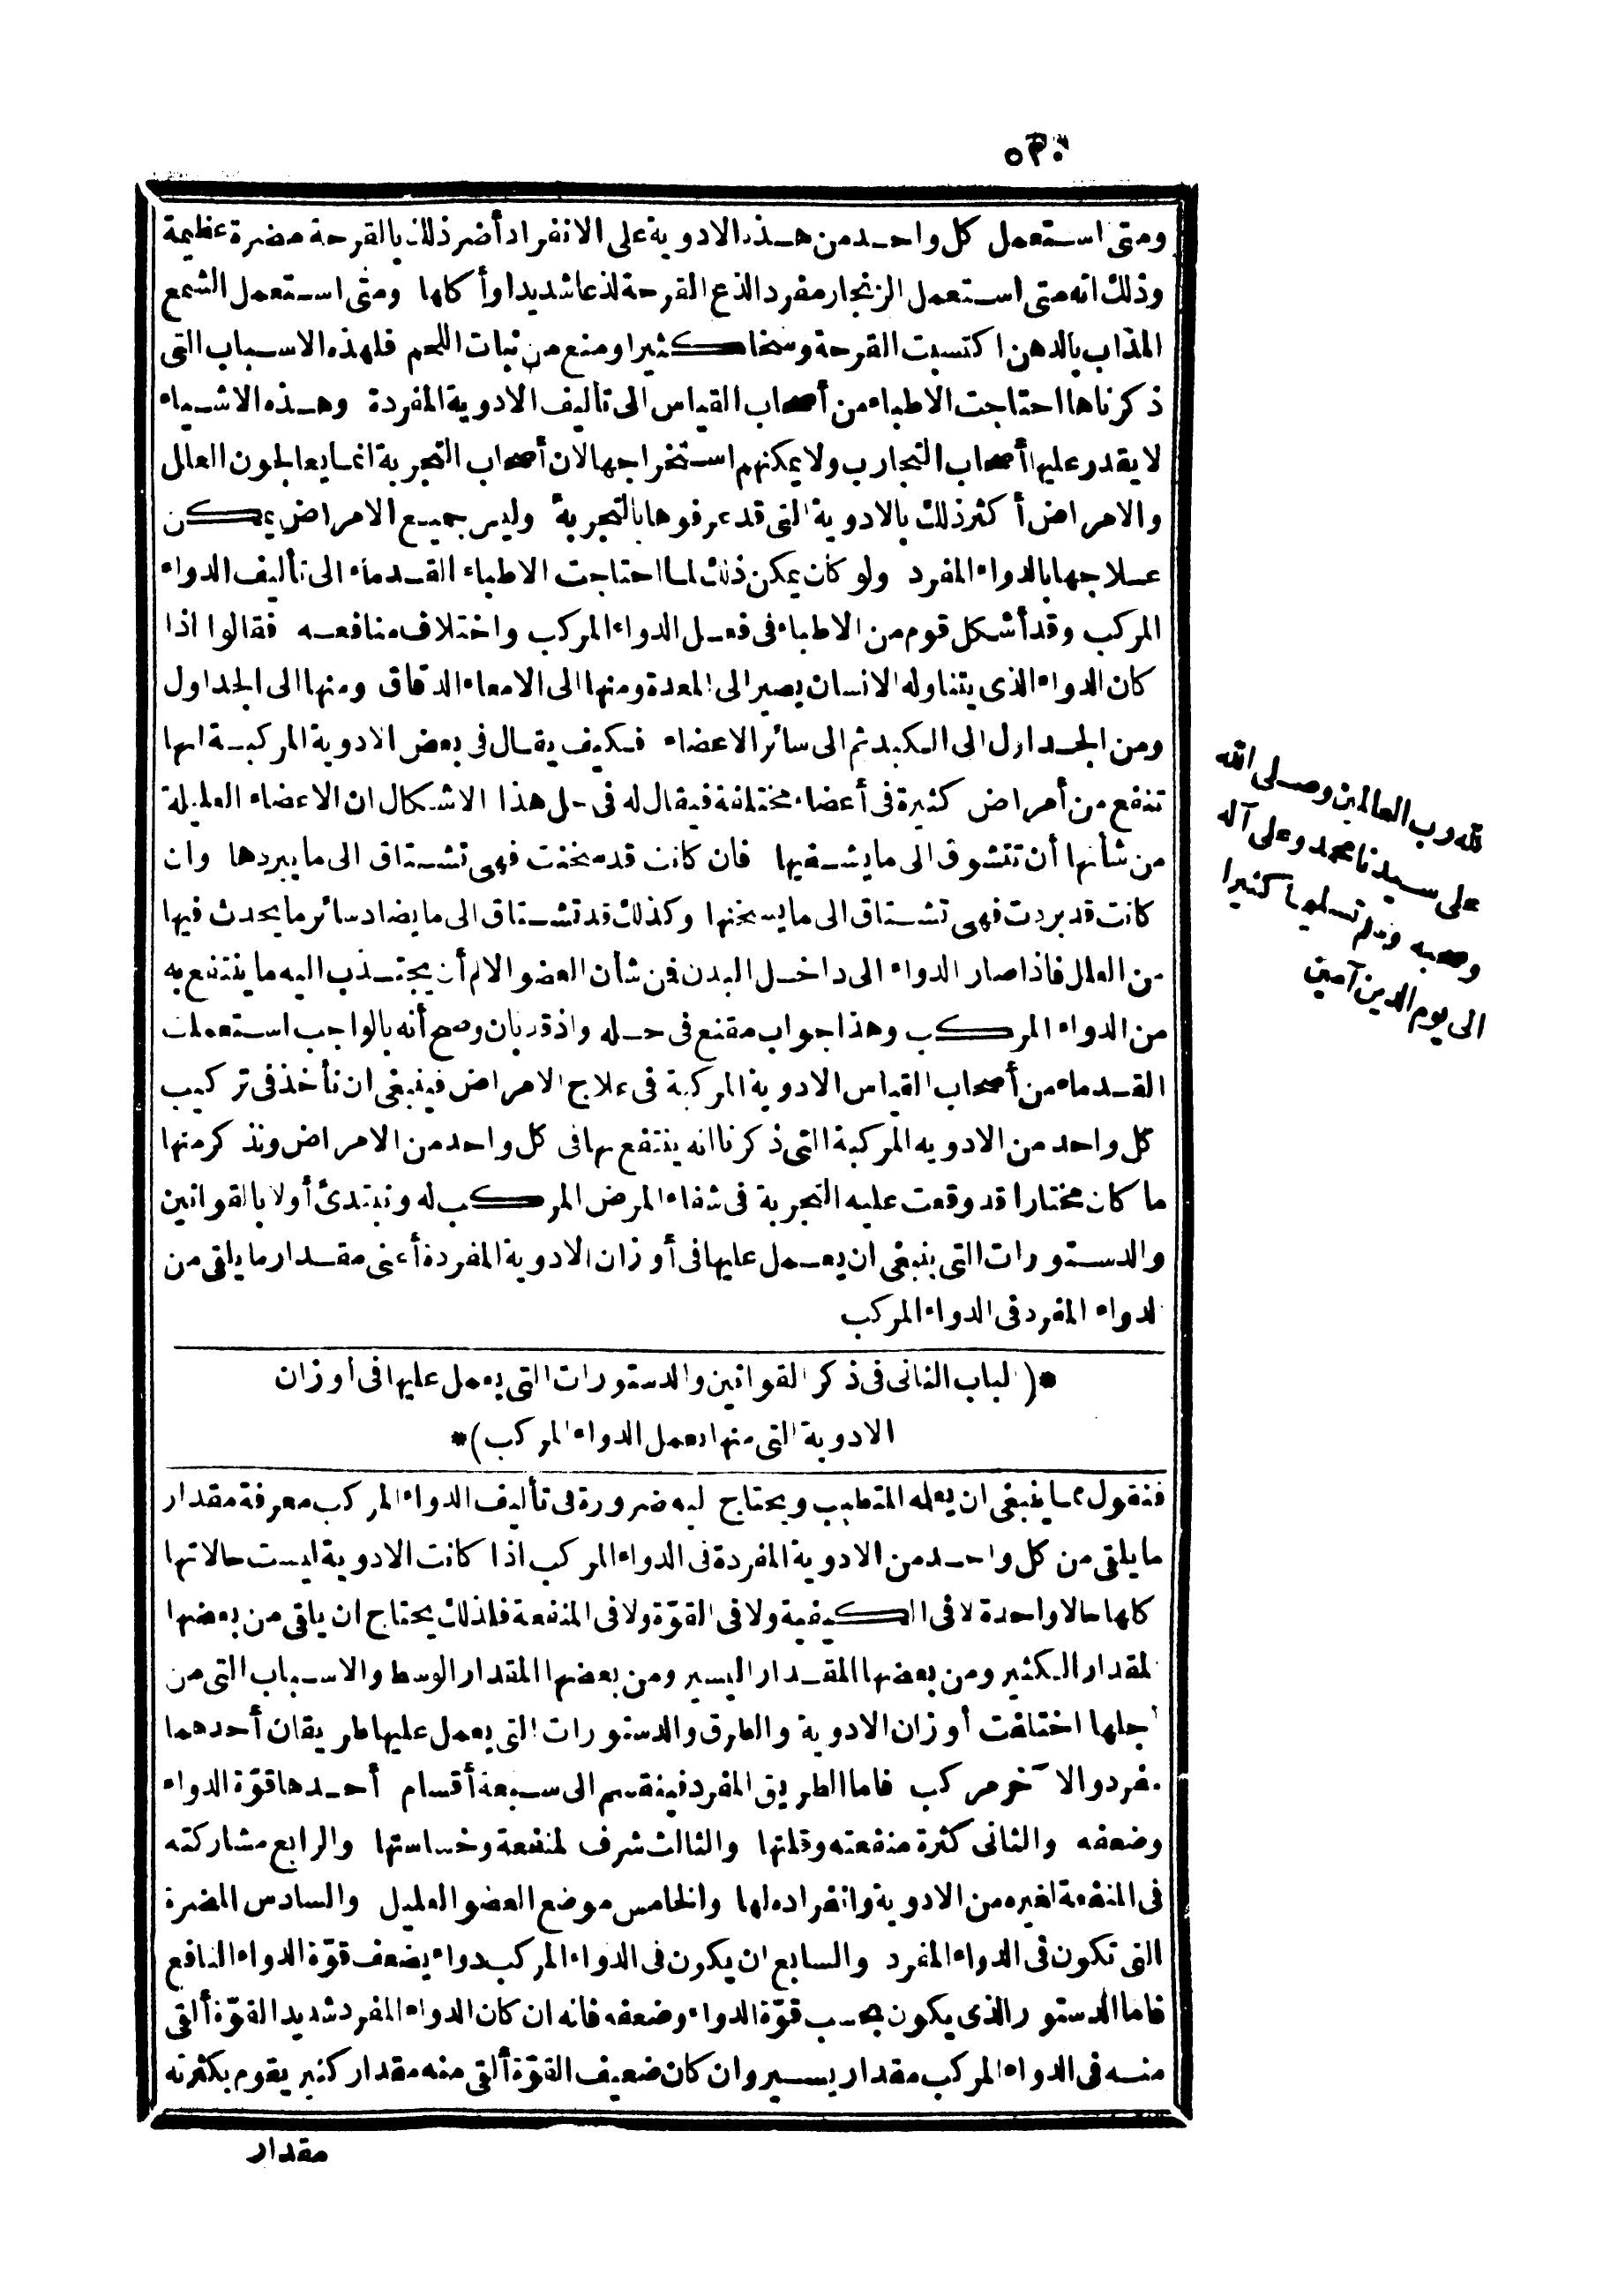 ٥٣٠
ومتى استعمل كل واحد من هذه الادوية على الانفراد أضر ذلك بالقرحة مضرة عظيمة
وذلك انه متى استعمل الزنجار مفردا لذع القرحة لذعا شديدا وأكلها ومتى استعمل الشمع
المذاب بالدهن اكتسبت القرحة وسخا كثيرا ومنع من نبات اللحم فلهذه الاسباب التى
ذكرناها احتاجت الاطباء من أصحاب القياس الى تأليف الادوية المفردة وهذه الاشياء
لا يقدر عليها أصحاب التجارب ولا يمكنهم استخراجها لان أصحاب التجربة انما يعالجون العلل
والامراض أكثر ذلك بالادوية التى قد عرفوها بالتجربة وليس جميع الامراض يمكن
علاجها بالدواء المفرد ولو كان يمكن ذلك لما احتاجت الاطباء القدماء الى تأليف الدواء
المركب وقد أشكل قوم من الاطباء فى فعل الدواء المركب واختلاف منافعه فقالوا اذا
كان الدواء الذى يتناوله الانسان يصير الى المعدة ومنها الى الامعاء الدقاق ومنها الى الجداول
ومن الجداول الى الكبد ثم الى سائر الاعضاء فكيف يقال فى بعض الادوية المركبة انها
تنفع من أمراض كثيرة فى أعضاء مختلفة فيقال له فى حل هذا الاشكال ان الاعضاء العليلة
من شأنها أن تتشوق الى ما يشفيها فان كانت قد سخنت فهى تشتاق الى ما يبردها وان
كانت قد بردت فهى تشتاق الى ما يسخنها وكذلك قد تشتاق الى ما يضاد سائر ما يحدث فيها
من العلل فاذا صار الدواء الى داخل البدن فمن شأن العضو الالم أن يجتذب اليه ما ينتفع به
من الدواء المركب وهذا جواب مقنع فى حله واذ قد بان وصح أنه بالواجب استعملت
القدماء من أصحاب القياس الادوية المركبة فى علاج الامراض فينبغى ان نأخذ فى تركيب
كل واحد من الادوية المركبة التى ذكرنا انه ينتفع بها فى كل واحد من الامراض ونذكر منها
ما كان مختارا قد وقعت عليه التجربة فى شفاء المرض المركب له ونبتدئ أولا بالقوانين
والدستورات التى ينبغى ان يعمل عليها فى أوزان الادوية المفردة أعنى مقدار ما يلقى من
الدواء المفرد فى الدواء المركب
*(الباب الثانى فى ذكر القوانين والدستورات التى يعمل عليها فى أوزان
الادوية التى منها يعمل الدواء المركب)*
فنقول مما ينبغى ان يعلمه المتطبب ويحتاج اليه ضرورة فى تأليف الدواء المركب معرفة مقدار
ما يلقى من كل واحد من الادوية المفردة فى الدواء المركب اذا كانت الادوية ليست حالاتها
كلها حالا واحدة لا فى الكيفية ولا فى القوّة ولا فى المنفعة فلذلك يحتاج ان يلقى من بعضها
المقدار الكثير ومن بعضها المقدار اليسير ومن بعضها المقدار الوسط والاسباب التى من
أجلها اختلفت أوزان الادوية والطرق والدستورات التى يعمل عليها طريقان أحدهما
مفرد والآخر مركب فاما الطريق المفرد فينقسم الى سبعة أقسام أحدها قوّة الدواء
وضعفه والثانى كثرة منفعته وقلتها والثالث شرف المنفعة وخساستها والرابع مشاركته
فى المنفعة لغيره من الادوية وانفراده لها والخامس موضع العضو العليل والسادس المضرة
التى تكون فى الدواء المفرد والسابع ان يكون فى الدواء المركب دواء يضعف قوّة الدواء النافع
فاما الدستور الذى يكون بحسب قوّة الدواء وضعفه فانه ان كان الدواء المفرد شديد القوّة ألقى
منه فى الدواء المركب مقدار يسير وان كان ضعيف القوّة ألقى منه مقدار كثير يقوم بكثرته
مقدار
لله رب العالمين وصلى الله
على سيدنا محمد وعلى آله
وصحبه وسلم تسليما كثيرا
الى يوم الدين آمين